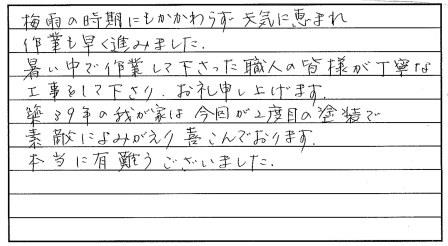 梅雨の時期にもかかわらず天気に恵まれ
作業も早く進みました.
暑い中で作業して下さった職人の皆様が丁寧な
工事をして下さり、お礼申し上げます.
築39年の我が家は今回が2度目の塗装で
素敵によみがえり喜こんでおります.
本当に有難うございました.